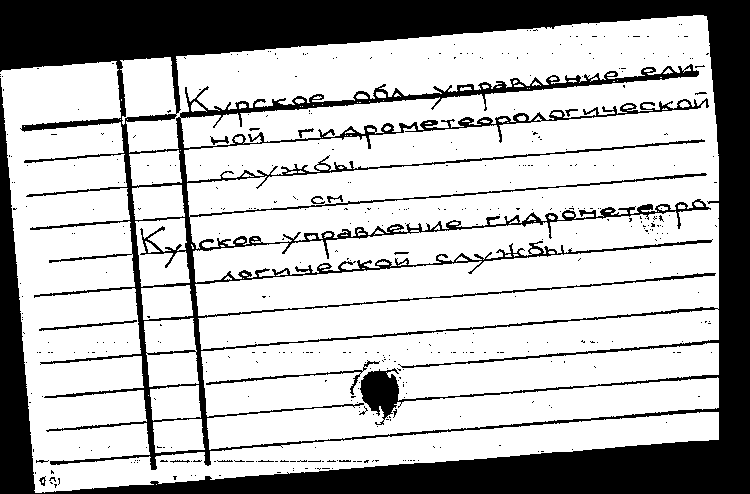 Курское обл. управление ели-
ной гидрометеорологической
службы.
см.
Курское управление гидрометеоро-
логической службы.